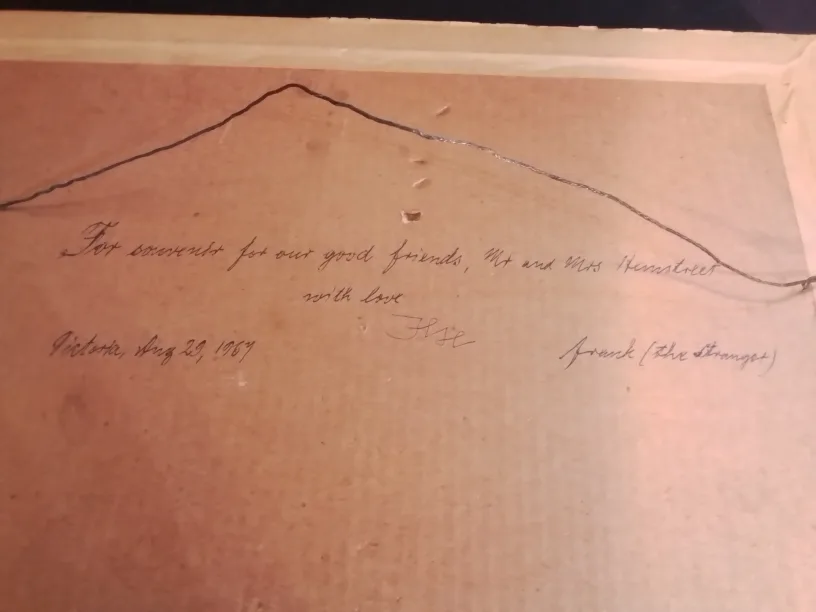 For souvenir for our good friends, Mr and Mrs Hemstreet
with love
Ilse
Victoria, Aug 29, 1967
Frank (the stranger)